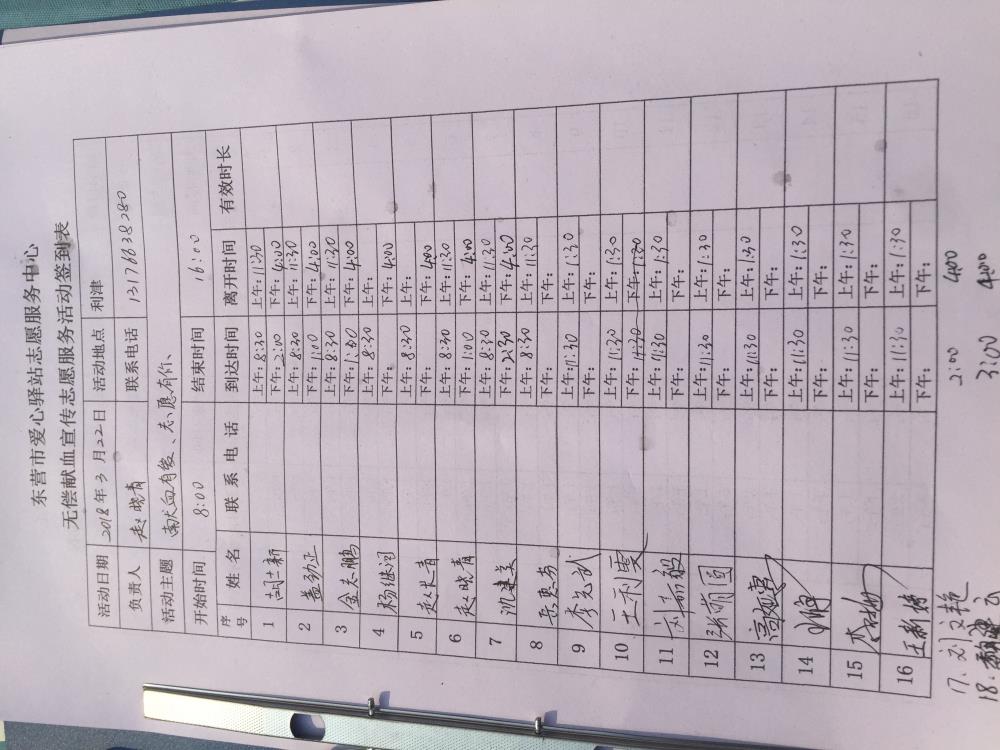 东营市爱心驿站志愿服务中心
无偿献血宣传志愿服务活动签到表
活动日期 2018年3月22日 活动地点 利津
负责人 赵晓青 联系电话 13176638280
活动主题 献血有爱、志愿有你、
开始时间 8:00 结束时间 16:00
序号 姓名 联系电话 到达时间 离开时间 有效时长
1 上午:8:30 上午:11:30
下午:2:00 下午:4:00
2 盖劲正 上午:8:30 上午:11:30
下午:1:00 下午:4:00
3 金志鹏 上午:8:30 上午:11:30
下午:1:30 下午:4:00
4 杨继润 上午:8:30 上午:
下午: 下午:4:00
5 上午:8:30 上午:
下午: 下午:4:00
6 赵晓青 上午:8:30 上午:11:30
下午:1:00 下午:4:00
7 上午:8:30 上午:11:30
下午:2:30 下午:4:00
8 上午:8:30 上午:11:30
下午: 下午:
9 李光武 上午:11:30 上午:1:30
下午: 下午:
10 王利雯 上午:11:30 上午:1:30
下午:11:30 下午:1:30
11 刘嘉毅 上午:11:30 上午:1:30
下午: 下午:
12 张萌圆 上午:11:30 上午:1:30
下午: 下午:
13 上午:11:30 上午:1:30
下午: 下午:
14 上午:11:30 上午:1:30
下午: 下午:
15 上午:11:30 上午:1:30
下午: 下午:
16 王新博 上午:11:30 上午:1:30
下午: 下午:
17. 刘文艳 2:00 4:00
18. 3:00 4:00